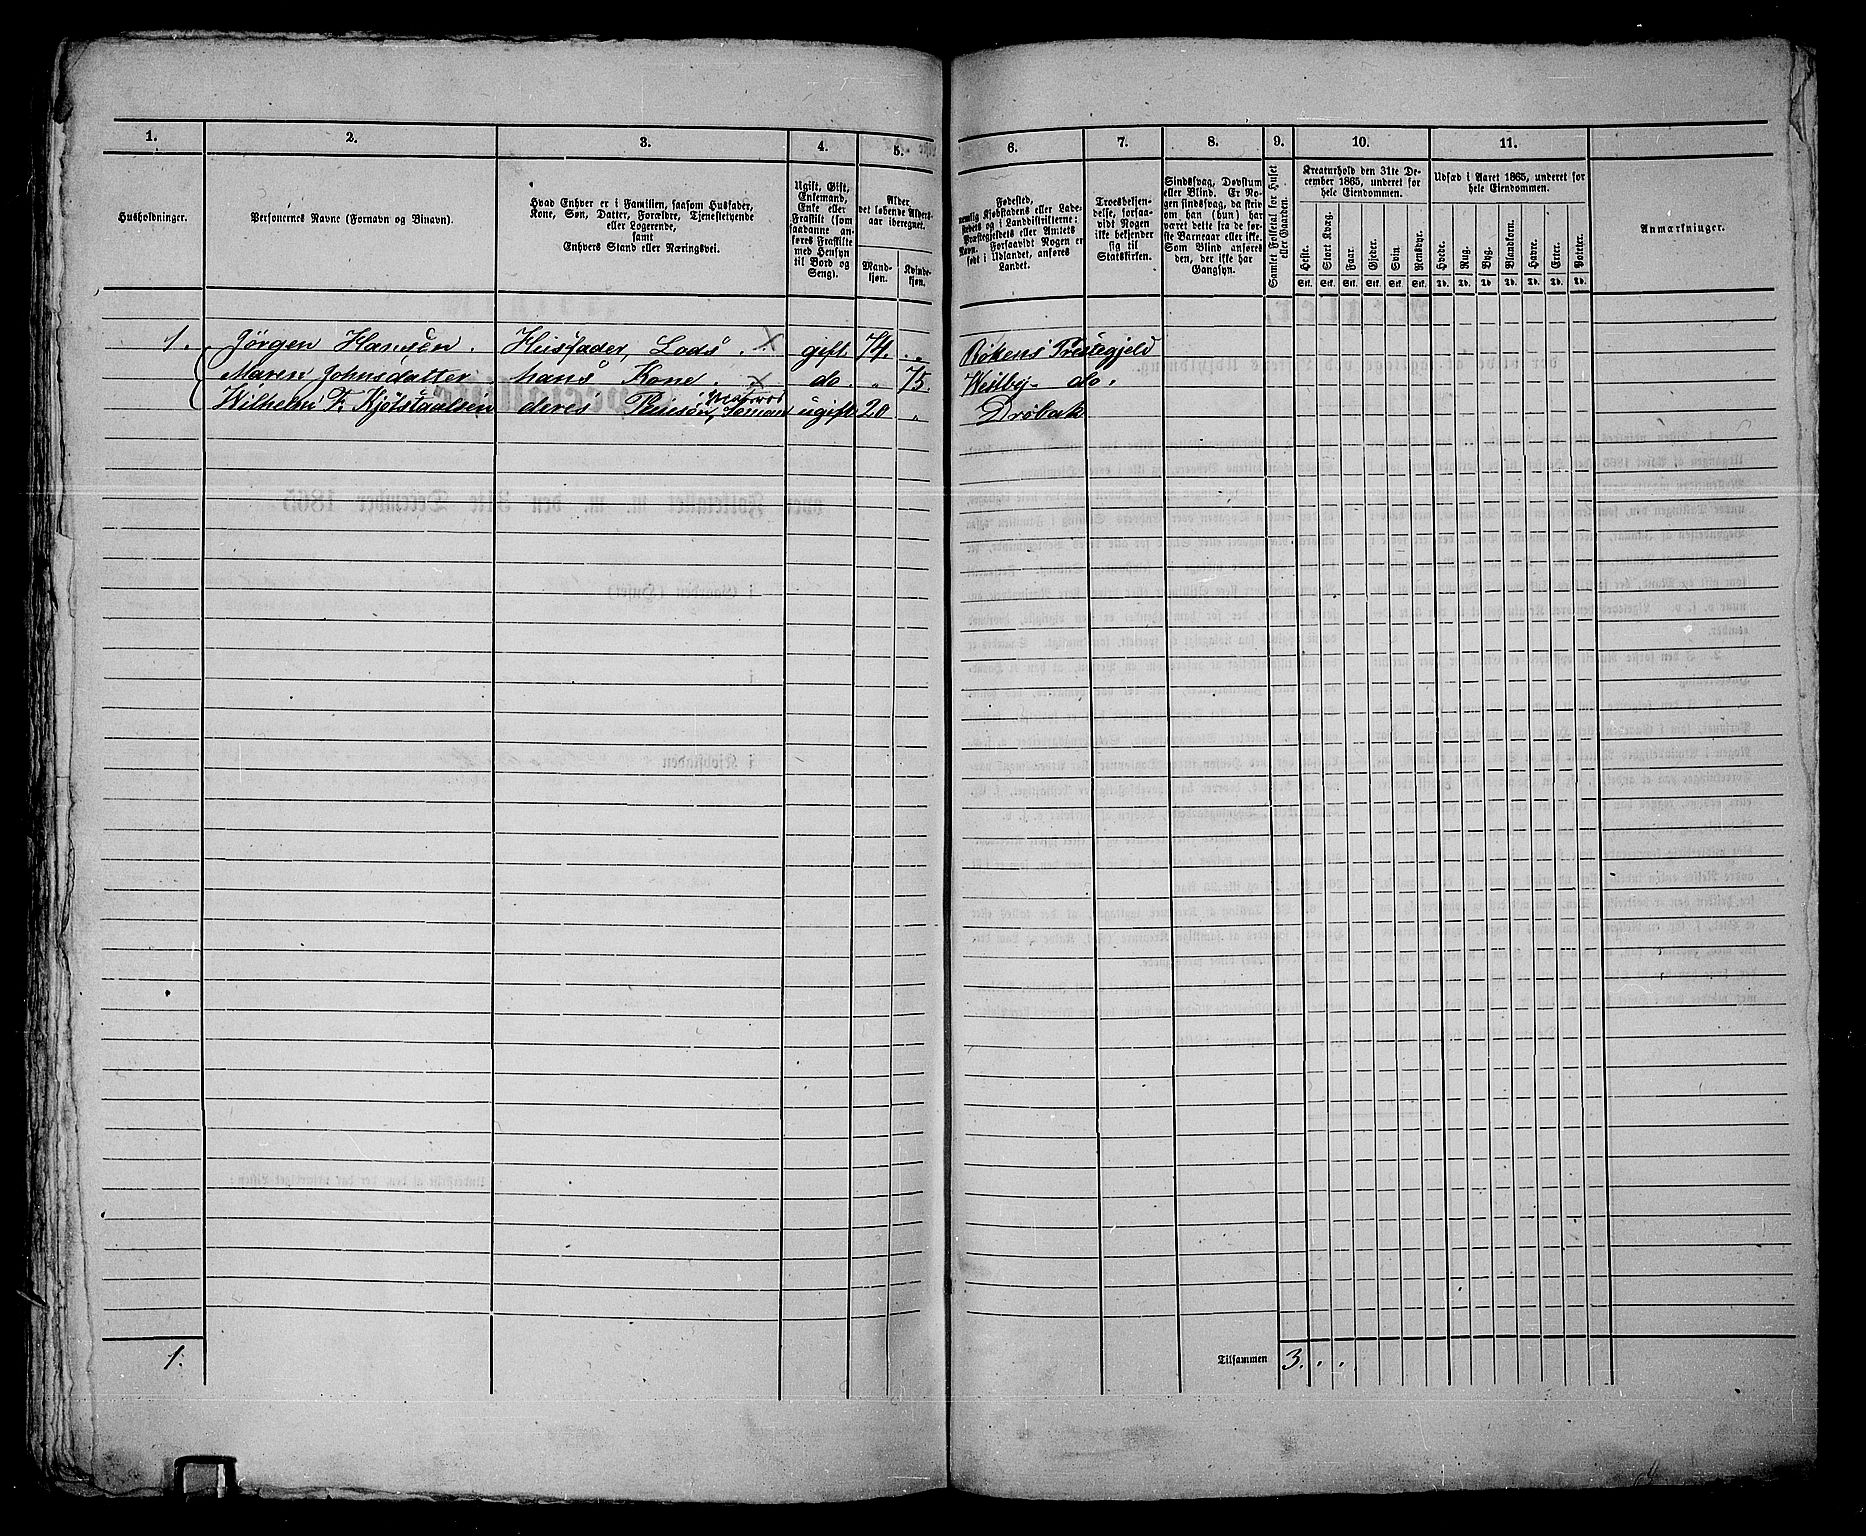 1. 2. 3. 4. 5. 6. 7. 8. 9. 10. 11.
Husholdninger.
Personernes Navne (Fornavn og Binavn).
Hvad Enhver er i Familien, saasom Husfader,
Kone, Søn, Datter, Forældre, Tjenestetyende
eller Logerende,
samt
Enhvers Stand eller Næringsvei.
Ugift, Gift,
Enkemand,
Enke eller
Fraskilt (som
saadanne an-
føres Fraskilte
med Hensyn
til Bord og
Seng).
Alder,
det løbende Alders-
aar iberegnet.
Mand-
kjøn.
Kvinde-
kjøn.
Fødested,
nemlig Kjøbstadens eller Lade-
stedets og i Landdistrikterne:
Præstegjeldets eller Amtets
Navn. Forsaavidt Nogen er
født i Udlandet, anføres
Landet.
Troesbekjen-
delse, forsaa-
vidt Nogen
ikke bekjender
sig til
Statskirken.
Sindssvag, Døvstum
eller Blind. Er No-
gen sindssvag, da skriv
om han (hun) har
været dette fra de før-
ste Barneaar eller ikke.
Som Blind anføres
den, der ikke har
Gangsyn.
Samlet Folketal for Huset
eller Gaarden.
Kreaturhold den 31te De-
cember 1865, underet for
hele Eiendommen.
Heste. Stort Kvæg. Faar. Gjeder. Svin. Rensdyr.
Stk. Stk. Stk. Stk. Stk. Stk.
Udsæd i Aaret 1865, underet for
hele Eiendommen.
Hvede. Rug. Byg. Blandkorn. Havre. Erter. Poteter.
Td. Td. Td. Td. Td. Td. Td.
Anmærkninger.
1. Jörgen Hansen. Husfader, Lods. gift. 74. „ Rökens Prestegjeld
Maren Johnsdatter. hans Kone. do. „ 75. Westby do.
Matros
Wilhelm F. Kjölstadsen deres Pleiesön, Sömand ugift 20 „ Dröbak
1. Tilsammen 3. . . .